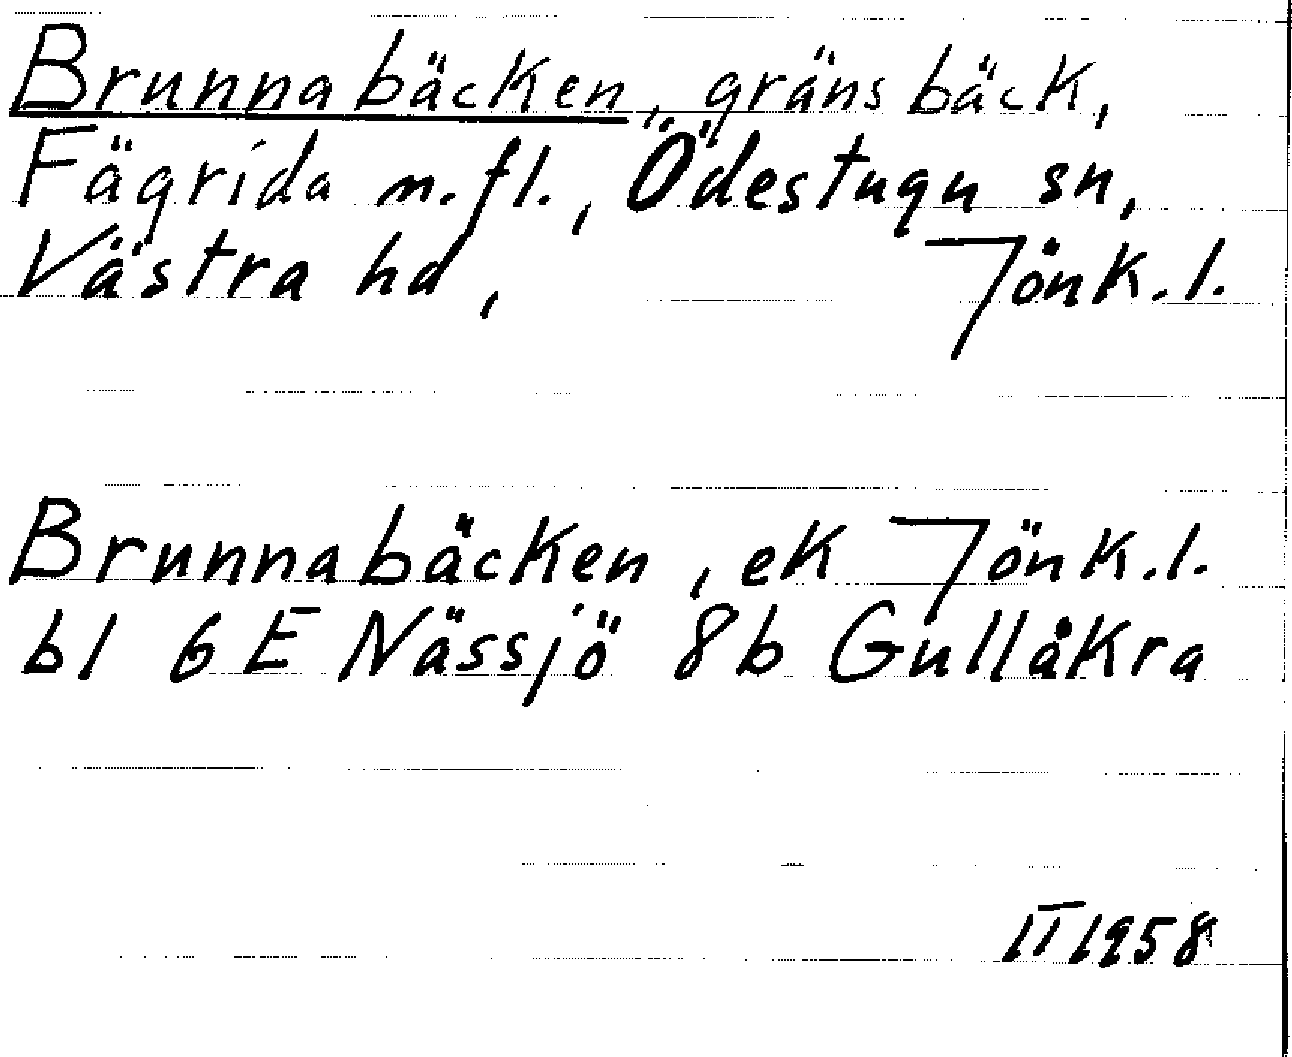 Brunnabäcken, gräns bäck,
Fägrida m.fl., Ödestugu sn,
Västra hd, Jönk.l.
Brunnabäcken, ek Jönk.l.
bl 6E Nässjö 8b Gullåkra
II 1958